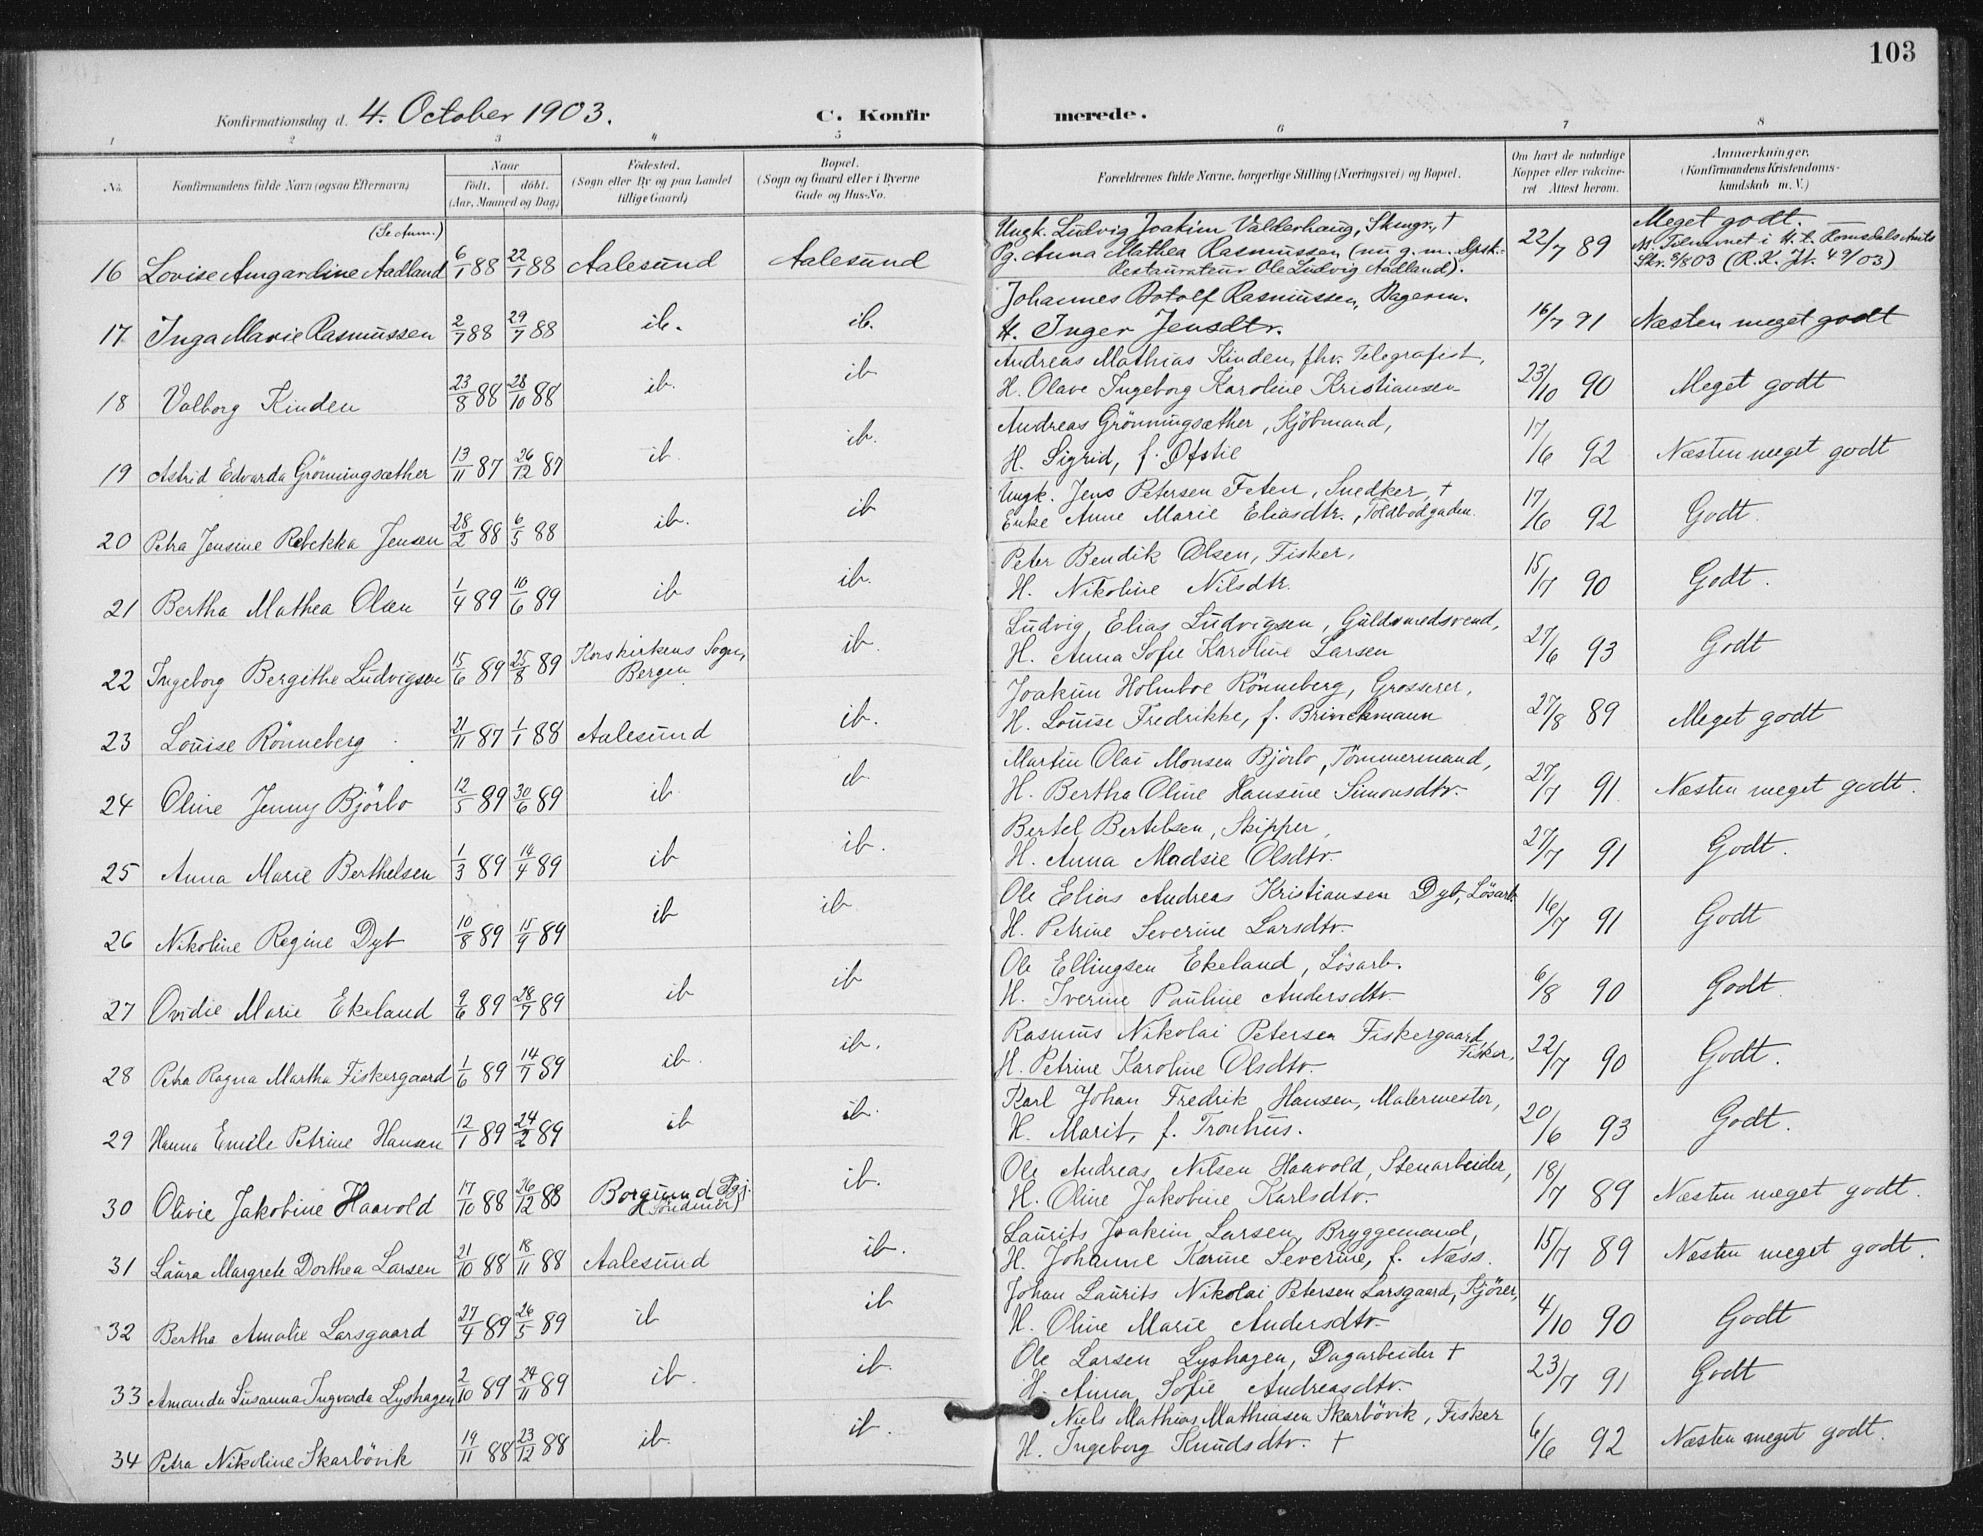 103
Konfirmationsdag d. 4. October 1903. C. Konfirmerede.
1 2 3 4 5 6 7 8
No. Konfirmandens fulde Navn (ogsaa Efternavn) Naar födt. döbt. (Aar, Maaned og Dag) Födested. (Sogn eller By og paa Landet tillige Gaard) Bopæl. (Sogn og Gaard eller i Byerne Gade og Hus-No. Forældrenes fulde Navne, borgerlige Stilling (Næringsvei) og Bopæl. Om havt de naturlige Kopper eller vakcineret Attest herom. Anmærkninger. (Konfirmandens Kristendomskundskab m. V.)
(Se Anm.) Ungk. Ludvig Joakim Valderhaug, Skmgr., † Meget godt.
16 Lovise Amgardine Aadland 6/1 88 22/1 88 Aalesund Aalesund Pg. Anna Mathea Rasmussen (nu g. m. Dpsk.- 22/7 89 Romsdals Amts
Restaurateur Ole Ludvig Aadland). Skr. 8/8 03 (R. K. Jt. 49/03)
Johannes Botolf Rasmussen, Bagerm.
17 Inga Marie Rasmussen 2/7 88 29/7 88 ib. ib. H. Inger Jensdtr. 16/7 91 Næsten meget godt
Andreas Mathias Kinden, fhv. Telegrafist,
18 Valborg Kinden 23/8 88 28/10 88 ib. ib H. Olave Ingeborg Karoline Kristiansen 23/10 90 Meget godt
Andreas Grönningsæther, Kjöbmand,
19 Astrid Edvarda Grönningsæther 13/11 87 26/12 87 ib. ib. H. Sigrid, f. Øfstie 17/6 92 Næsten meget godt
Ungk. Jens Petersen Feten, Snedker, †
20 Petra Jensine Rebekka Jensen 28/2 88 6/5 88 ib. ib Enke Anne Marie Eliasdtr., Toldbodgaden. 17/6 92 Godt.
Peter Bendik Olsen, Fisker,
21 Bertha Mathea Olsen 1/4 89 10/6 89 ib ib. H. Nikoline Nilsdtr. 15/7 90 Godt.
Ludvig Elias Ludvigsen, Guldsmedsvend,
22 Ingeborg Bergithe Ludvigsen 15/6 89 25/8 89 Korskirkens Sogn, Bergen ib. H. Anna Sofie Karoline Larsen 27/6 93 Godt
Joakim Holmboe Rönneberg, Grosserer,
23 Louise Rönneberg 21/11 87 1/1 88 Aalesund ib. H. Louise Fredrikke, f. Brinckmann 27/8 89 Meget godt
Martin Olai Monsen Björlo, Tömmermand,
24 Oline Jenny Björlo 12/5 89 30/6 89 ib. ib. H. Bertha Oline Hansine Simonsdtr. 27/7 91 Næsten meget godt.
Bertel Bertelsen, Skipper,
25 Anna Marie Berthelsen 1/3 89 14/4 89 ib ib. H. Anna Madsie Olsdtr. 27/7 91 Godt.
Ole Elias Andreas Kristiansen Dyb, Lösarb.
26 Nikoline Regine Dyb 10/8 89 15/9 89 ib ib. H. Petrine Severine Larsdtr. 16/7 91 Godt
Ole Ellingsen Ekeland, Lösarb.
27 Ovidie Marie Ekeland 9/6 89 28/7 89 ib ib H. Iverine Pauline Andersdtr. 6/8 90 Godt.
Rasmus Nikolai Petersen Fiskergaard, Fisker,
28 Petra Ragna Martha Fiskergaard 1/6 89 14/7 89 ib. ib. H. Petrine Karoline Olsdtr. 22/7 90 Godt.
Karl Johan Fredrik Hansen, Malermester,
29 Hanna Emile Petrine Hansen 12/1 89 24/2 89 ib ib. H. Marit, f. Tronhus. 20/6 93 Godt.
Ole Andreas Nilsen Haavold, Stenarbeider,
30 Olivie Jakobine Haavold 17/10 88 26/12 88 Borgund Pgj. (Söndmör) ib. H. Oline Jakobine Karlsdtr. 18/7 89 Næsten meget godt.
Laurits Joakim Larsen, Bryggemand,
31 Laura Margrete Dorthea Larsen 21/10 88 18/11 88 Aalesund ib. H. Johanne Karine Severine, f. Næss. 15/7 89 Næsten meget godt.
Johan Laurits Nikolai Petersen Larsgaard, Kjörer,
32 Bertha Amalie Larsgaard 27/4 89 26/5 89 ib ib H. Oline Marie Andersdtr. 4/10 90 Godt
Ole Larsen Lyshagen, Dagarbeider †
33 Amanda Susanna Ingvarda Lyshagen 2/10 89 24/11 89 ib. ib. H. Anna Sofie Andreasdtr. 23/7 91 Godt
Niels Mathias Mathiasen Skarbövik, Fisker
34 Petra Nikoline Skarbövik 19/11 88 23/12 88 ib. ib. H. Ingeborg Knudsdtr. † 6/6 92 Næsten meget godt.